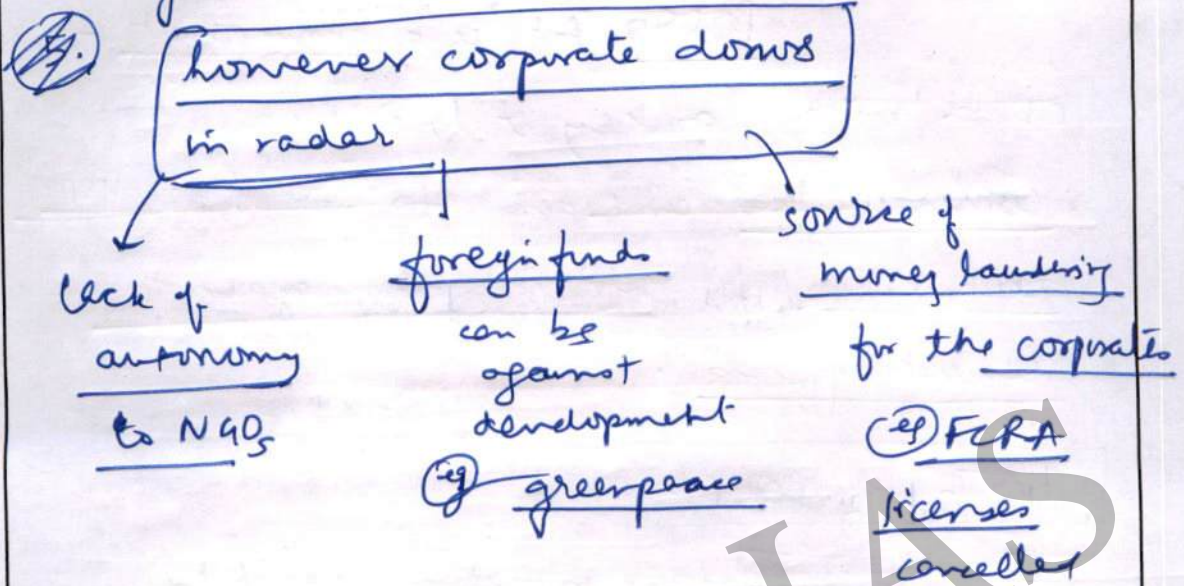 however corporate donors
in radar
lack of
autonomy
to NGOs
foreign funds
can be
against
development
eg greenpeace
source of
money laundering
for the corporates
eg FCRA
licenses
cancelled
IAS